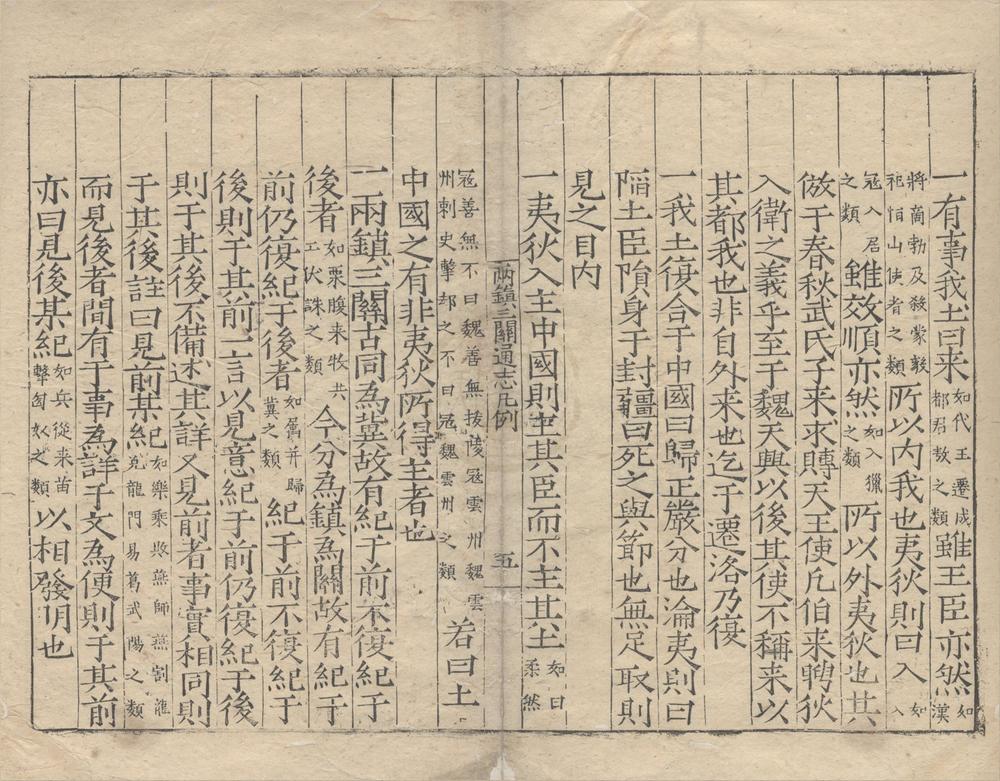 一有事我土曰来如代王遷成都君敖之類雖王臣亦然如漢
将蘭勃及殺蒙毅祀恒山使者之類所以内我也夷狄則曰入如入
冦入居之類雖效順亦然如入獵之類所以外夷狄也其
倣于春秋武氏子来求賻天王使凡伯来聘狄
入衛之義乎至于魏天興以後其使不稱来以
其都我也非自外来也迄于遷洛乃復
一我土復合于中國曰歸正嚴分也淪夷則曰
陷土臣隕身于封疆曰死之與節也無足取則
見之目内
一夷狄入主中國則主其臣而不主其土如曰柔然
兩鎮三關通志凡例 五
冦善無不曰魏善無拔陵冦雲州魏雲州刺史擊却之不曰冦魏雲州之類若曰土
中國之有非夷狄所得主者也
一兩鎮三關古同為冀故有紀于前不復紀于
後者如粟腹来牧共工伏誅之類今分為鎮為關故有紀于
前仍復紀于後者如厲并歸冀之類紀于前不復紀于
後則于其前一言以見意紀于前仍復紀于後
則于其後不備述其詳又見前者事實相同則
于其後註曰見前某紀如樂乘敗燕師燕割龍兌龍門易葛武陽之類
而見後者間有于事為詳于文為便則于其前
亦曰見後某紀如兵從来苗擊匈奴之類以相發明也